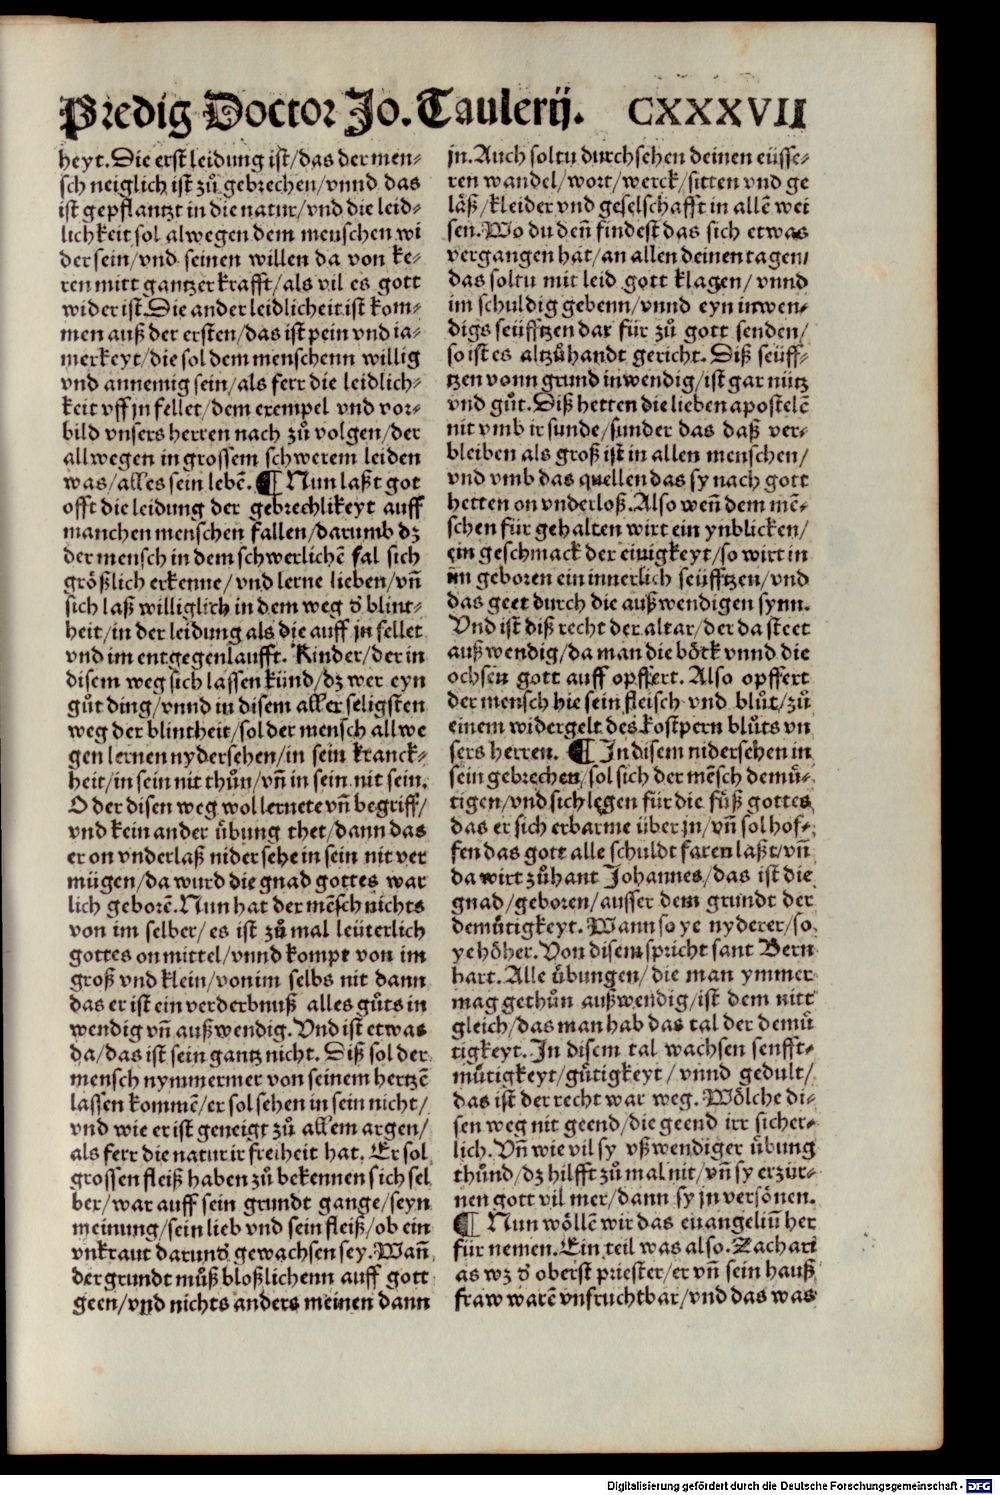 Predig Doctor Jo. Taulerij. CXXXVII
heyt. Die erst leidung ist/das der men-
sch neiglich ist zů gebrechen/vnnd das
ist gepflantzt in die natur/vnd die leid-
lichkeit sol alwegen dem menschen wi
der sein/vnd seinen willen da von ke-
ren mitt gantzer krafft/als vil es gott
wider ist. Die ander leidlicheit ist kom-
men auß der ersten/das ist pein vnd ia-
merkeyt/die sol dem menschenn willig
vnd annemig sein/als ferr die leidlich-
keit vff jn fellet/dem exempel vnd vor-
bild vnsers herren nach zů volgen/der
allwegen in grossem schwerem leiden
was/alles sein lebē. ¶ Nun laßt got
offt die leidung der gebrechlikeyt auff
manchen menschen fallen/darumb dz
der mensch in dem schwerlichē fal sich
größlich erkenne/vnd lerne lieben/vñ
sich laß williglich in dem weg ď blint-
heit/in der leidung als die auff jn fellet
vnd im entgegenlaufft. Kinder/der in
disem weg sich lassen künd/dz wer eyn
gůt ding/vnnd in disem aller seligsten
weg der blintheit/sol der mensch allwe
gen lernen nydersehen/in sein kranck-
heit/in sein nit thůn/vñ in sein nit sein.
O der disen weg wol lernete vñ begriff/
vnd kein ander übung thet/dann das
er on vnderlaß nider sehe in sein nit ver
mügen/da wurd die gnad gottes war
lich geborē. Nun hat der mēsch nichts
von im selber/es ist zů mal leüterlich
gottes on mittel/vnnd kompt von im
groß vnd klein/von im selbs nit dann
das er ist ein verderbnuß alles gůts in
wendig vñ außwendig. Vnd ist etwas
da/das ist sein gantz nicht. Diß sol der
mensch nymmermer von seinem hertzē
lassen kommē/er sol sehen in sein nicht/
vnd wie er ist geneigt zů allem argen/
als ferr die natur ir freiheit hat. Er sol
grossen fleiß haben zů bekennen sich sel
ber/war auff sein grundt gange/seyn
meinung/sein lieb vnd sein fleiß/ob ein
vnkraut darunď gewachsen sey. Wañ
der grundt můß bloßlichenn auff gott
geen/vnd nichts anders meinen dann
jn. Auch soltu durchsehen deinen eüsse-
ren wandel/wort/werck/sitten vnd ge
läß/kleider vnd geselschafft in allē wei
sen. Wo du deñ findest das sich etwas
vergangen hat/an allen deinen tagen/
das soltu mit leid gott klagen/vnnd
im schuldig gebenn/vnnd eyn inwen-
digs seüfftzen dar für zů gott senden/
so ist es altzůhandt gericht. Diß seüff-
tzen vonn grund inwendig/ist gar nütz
vnd gůt. Diß hetten die lieben apostelē
nit vmb ir sunde/sunder das daß ver-
bleiben als groß ist in allen menschen/
vnd vmb das quellen das sy nach gott
hetten on vnderloß. Also weñ dem mē-
schen für gehalten wirt ein ynblicken/
ein geschmack der einigkeyt/so wirt in
im geboren ein innerlich seüfftzen/vnd
das geet durch die außwendigen synn.
Vnd ist diß recht der altar/der da steet
außwendig/da man die böck vnnd die
ochsen gott auff opffert. Also opffert
der mensch hie sein fleisch vnd blůt/zů
einem widergelt des kostpern blůts vn
sers herren. ¶ In disem nidersehen in
sein gebrechen/sol sich der mēsch demü-
tigen/vnd sich legen für die füß gottes
das er sich erbarme über jn/vñ sol hof-
fen das gott alle schuldt faren laßt/vñ
da wirt zůhant Johannes/das ist die
gnad/geboren/ausser dem grundt der
demütigkeyt. Wann so ye nyderer/so
ye höher. Von disem spricht sant Bern
hart. Alle übungen/die man ymmer
mag gethůn außwendig/ist dem nitt
gleich/das man hab das tal der demü
tigkeyt. In disem tal wachsen senfft-
mütigkeyt/gütigkeyt/vnnd gedult/
das ist der recht war weg. Wölche di-
sen weg nit geend/die geend irr sicher-
lich. Vñ wie vil sy vßwendiger übung
thůnd/dz hilfft zů mal nit/vñ sy erzür-
nen gott vil mer/dann sy jn versönen.
¶ Nun wöllē wir das euangeliū her
für nemen. Ein teil was also. Zachari
as wz ď oberst priester/er vñ sein hauß
fraw warē vnfruchtbar/vnd das was
Digitalisierung gefördert durch die Deutsche Forschungsgemeinschaft - DFG